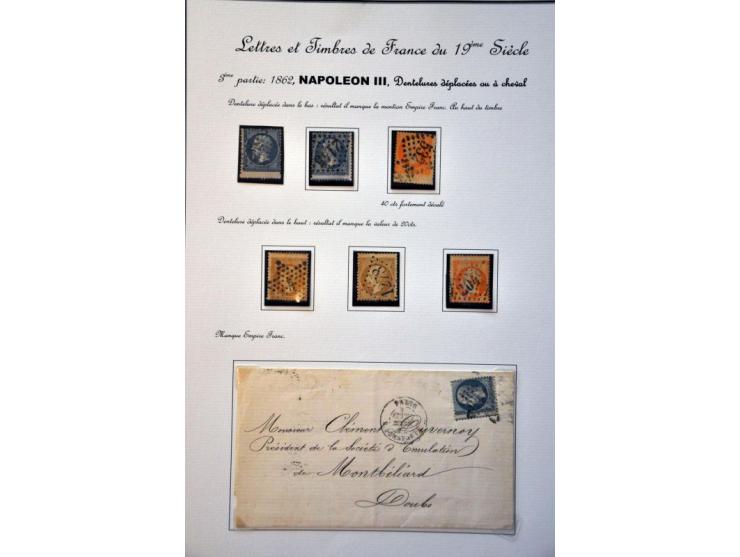 Lettres et Timbres de France du 19ème Siècle
3ème partie: 1862, NAPOLEON III, Dentelures déplacées ou à cheval
Dentelure déplacée dans le bas : résultat il manque la mention Empire Franc. Au haut du timbre
40 cts fortement décalé
Dentelure déplacée dans le haut : résultat il manque la valeur de 20cts.
Manque Empire Franc.
PARIS
Monsieur Clément Duvernoy
Président de la Société d'Emulation
de Montbéliard
Doubs